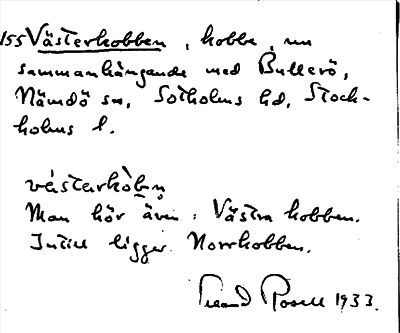 155 Västerkobben, kobbe, nu
sammanhängande med Bullerö,
Nämdö sn, Sotholms hd, Stock-
holms l.
västarkòbm̥
Man hör även: Västra kobben.
Intill ligger Norrkobben.
Rosell 1933.